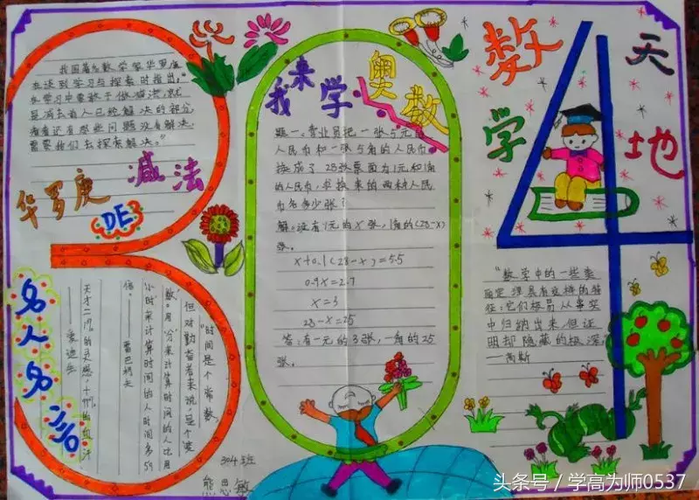 我国著名数学家华罗庚
在谈到学习与探索时指出:"
在学习中要敢于做减法,就
是减去前人已经解决的部分,
看看还有那些问题没有解决,
需要我们去探索解决。"
华罗庚
DE
减法
我来学奥数
题一、营业员把一张5元的
人民币和一张5角的人民币
换成了28张票面为1元和1角
的人民币,求换来的两种人民
币各多少张?
解:设有1元的x张,1角的(28-x)
张。
x+0.1(28-x)=5.5
0.9x=2.7
x=3
28-x=25
答:有一元的3张,一角的25
张。
数学天地
"数学中的一些美
丽定理具有这样的特
性:它们极易从事实
中归纳出来,但证
明却隐藏的极深。
——高斯
名人名言
"时间是个常数,
但对勤奋者来说,是个'变
数'。用'分'来计算时间的人比用
'小时'来计算时间的人时间多59
倍。
——雷巴柯夫
天才=1%的灵感+99%的血汗
——爱迪生
304班
熊思敏
头条号 / 学高为师0537